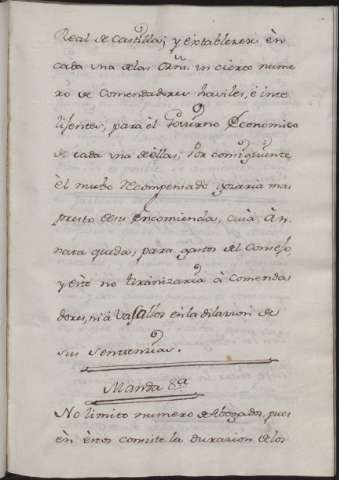 Real de Castilla; y establecer èn
cada vna delas Orñs. un cierto nume
ro de Comendadores haviles, è inte
lijentes, para èl Govierno Economico
de cada vna de èllas; Por consiguiente,
èl nuebo Recompensado gozaria mas
presto desu Encomienda, cuià àn
nata queda, para gastos del Consejo,
y èste no tiranizaria à Comenda
dores, ni à Vasallos enla dilacion de
sus Sentencias.
Manda 8ª
No limito numero de Abogados, pues
èn èstos consiste la duracion delos